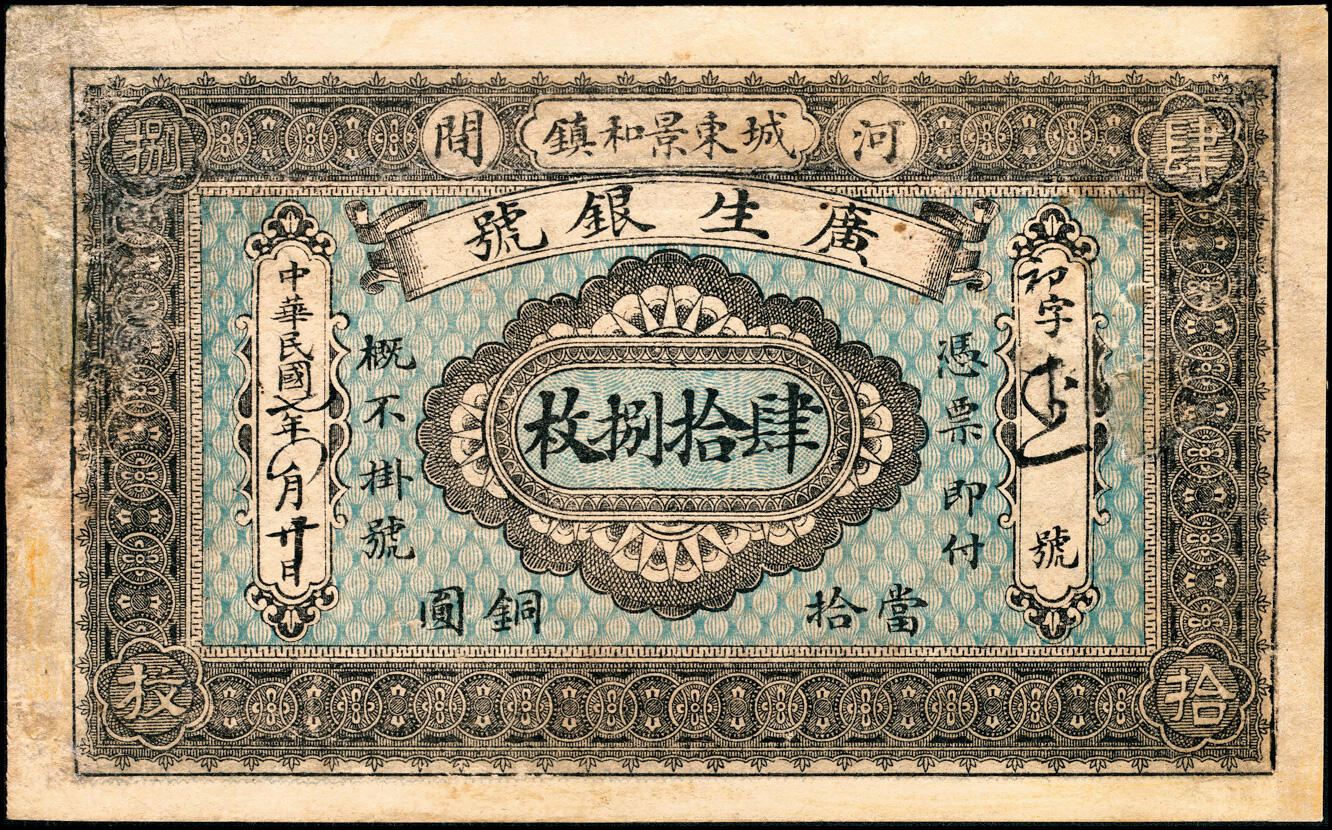 河間
城東景和鎮
廣生銀號
肆拾捌枚
字號
憑票即付
肆拾捌枚
當拾銅圓
概不掛號
中華民國七年月日